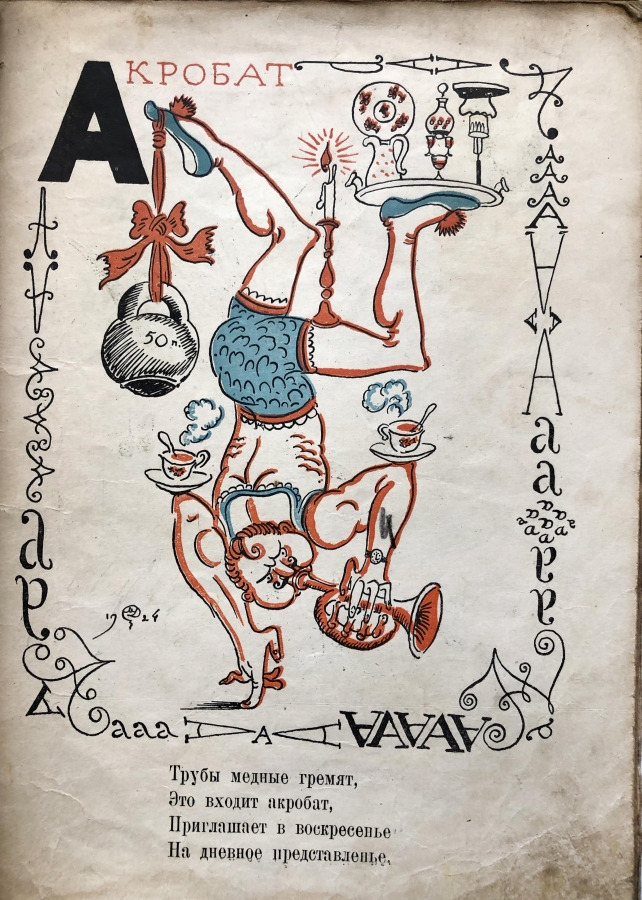 АКРОБАТ
50 п.
1924
ааа
А
АААА
Трубы медные гремят,
Это входит акробат,
Приглашает в воскресенье
На дневное представленье,